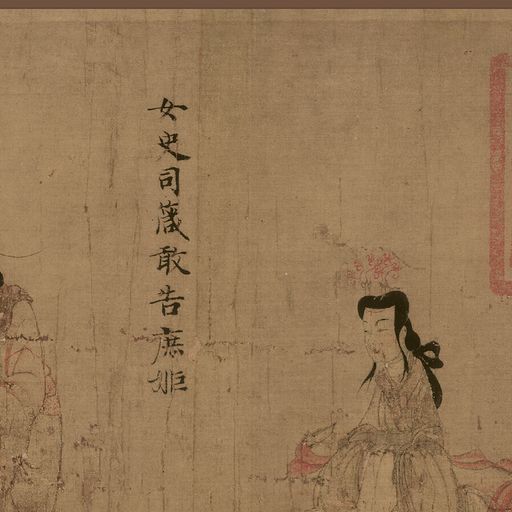 女史司箴敢告庶姬